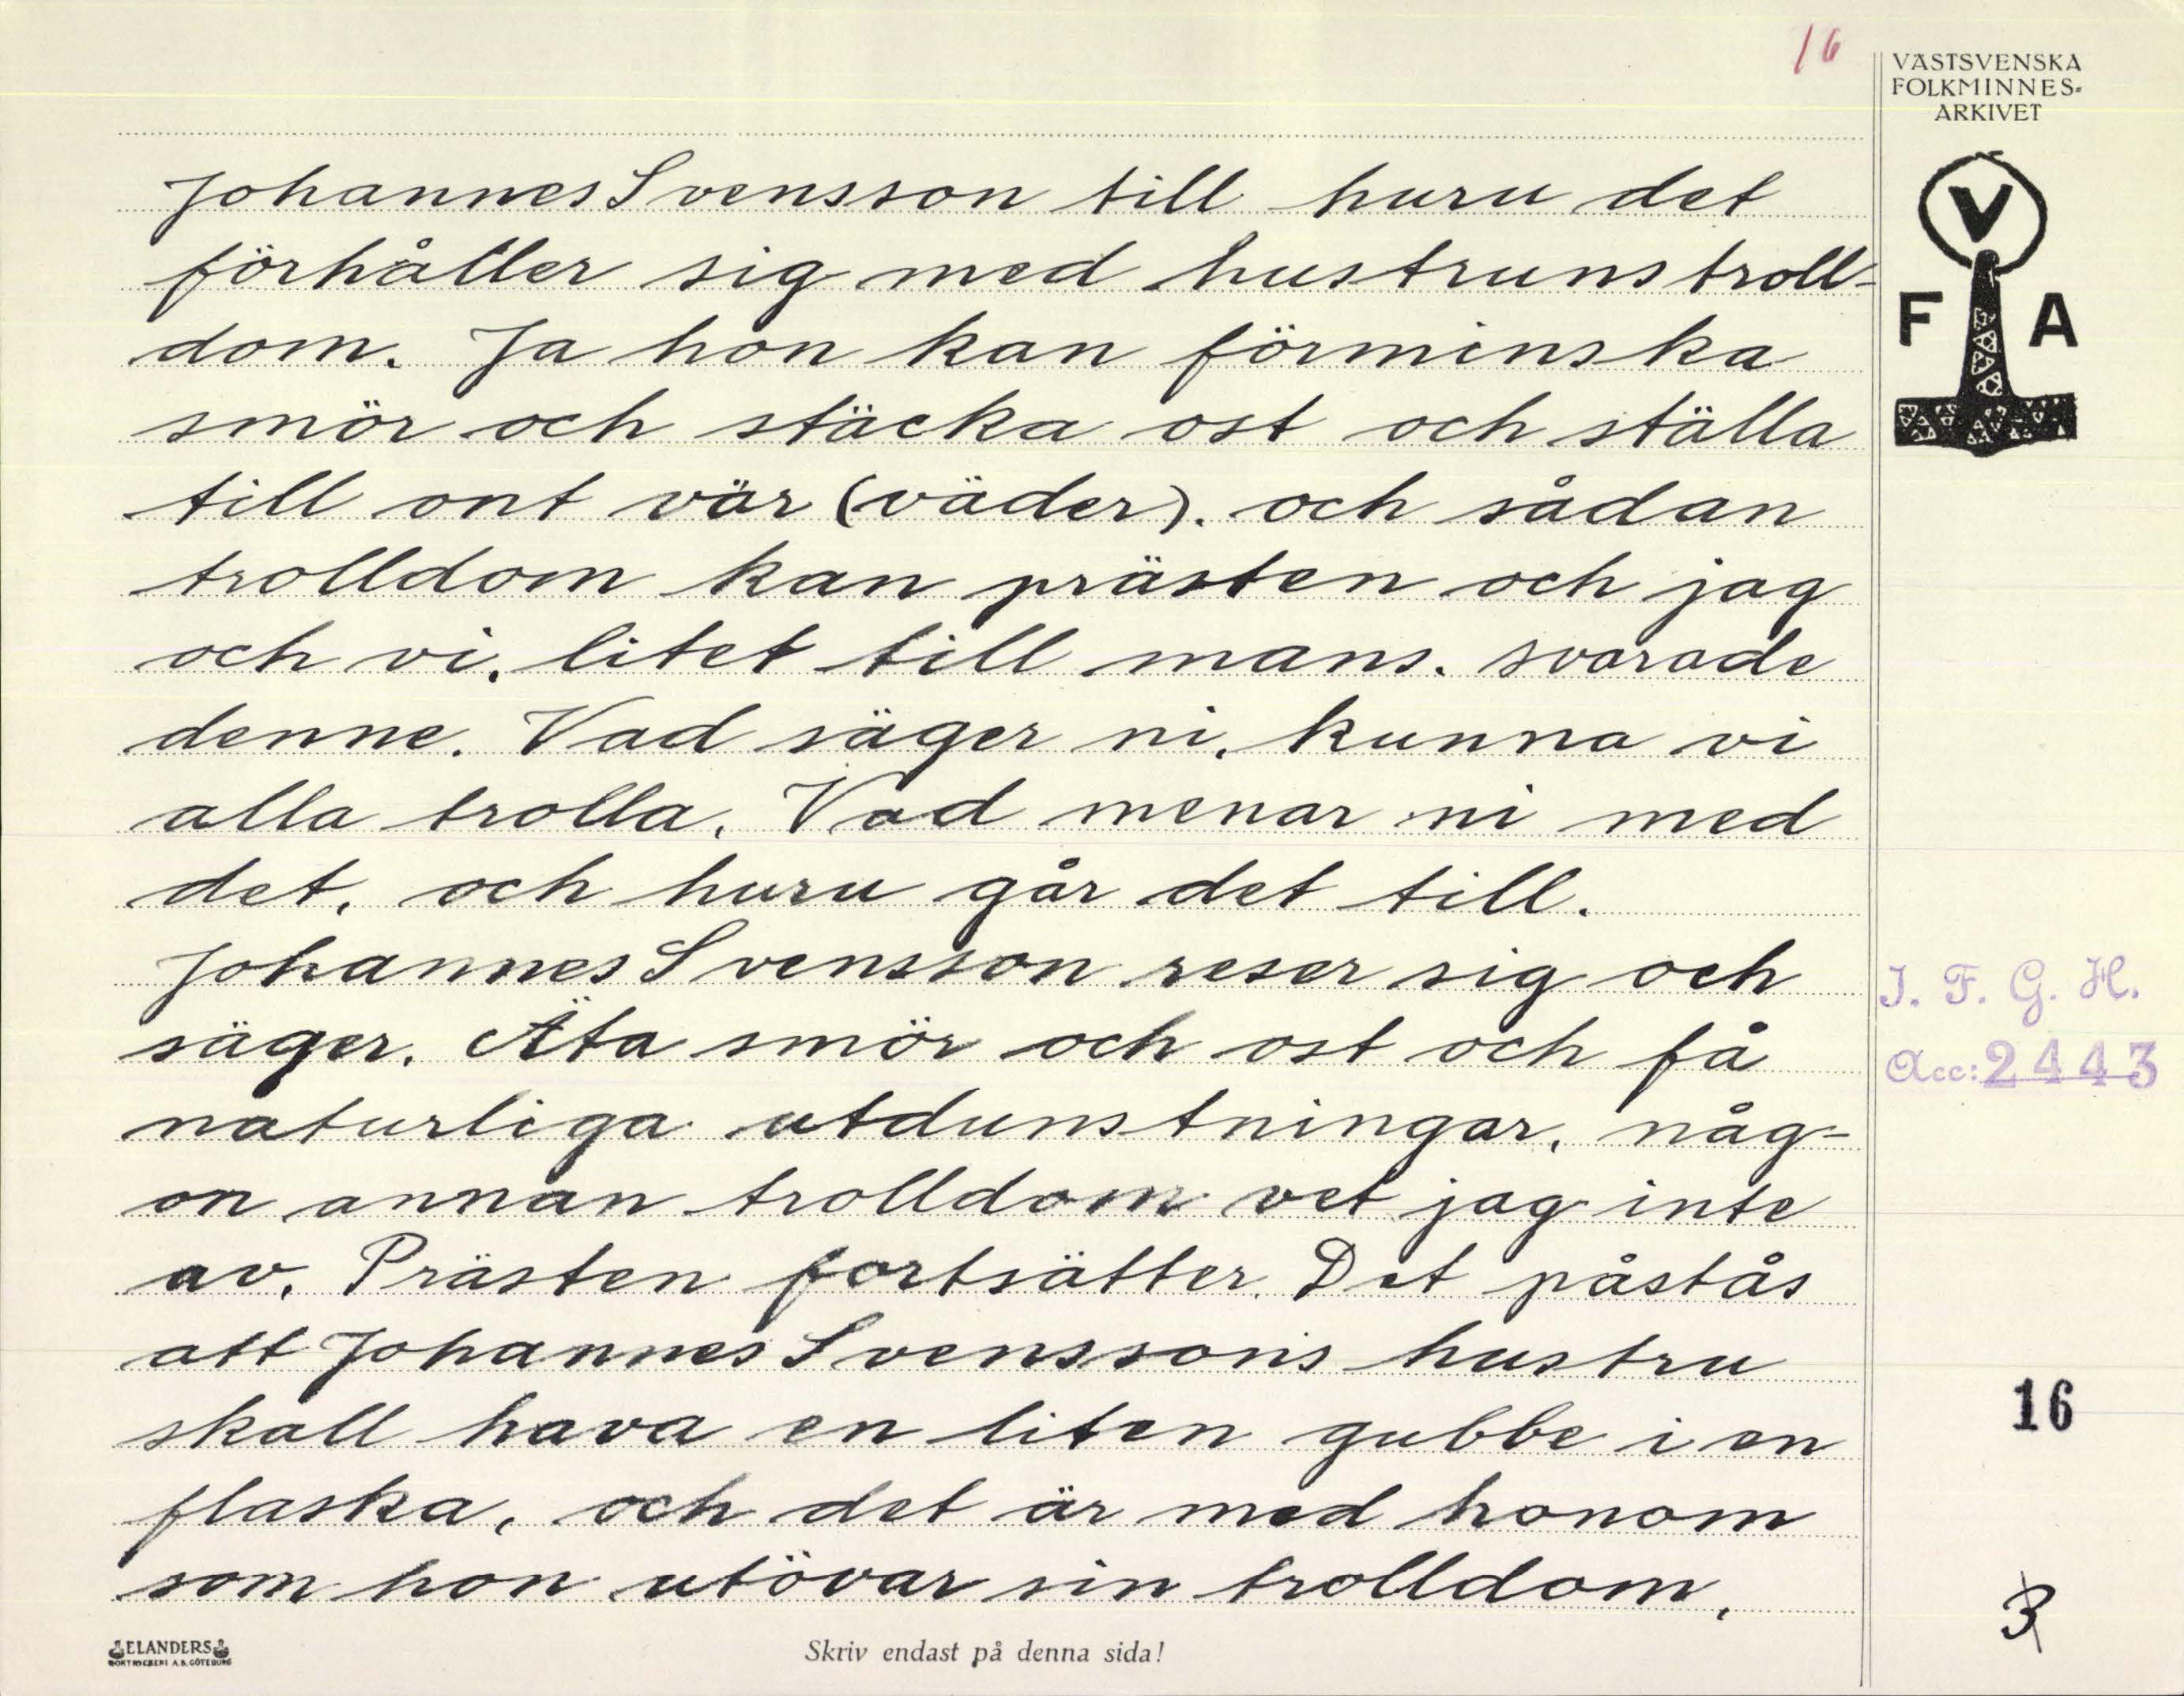 16
VÄSTSVENSKA
FOLKMINNES-
ARKIVET
V
F A
Johannes Svensson till huru det
förhåller sig med hustruns troll-
dom. Ja hon kan förminska
smör och stäcka ost och ställa
till ont vär (väder). och sådan
trolldom kan prästen och jag
och vi, litet till mans. svarade
denne. Vad säger ni, kunna vi
alla trolla. Vad menar ni med
det, och huru går det till.
Johannes Svensson reser sig och
säger. Äta smör och ost och få
naturliga utdunstningar, någ-
on annan trolldom vet jag inte
av. Prästen fortsätter. Det påstås
att Johannes Svenssons hustru
skall hava en liten gubbe i en
flaska, och det är med honom
som hon utövar sin trolldom,
I. F. G. H.
Acc: 2443
16
3
ELANDERS
BOKTRYCKERI A.B. GÖTEBORG
Skriv endast på denna sida!